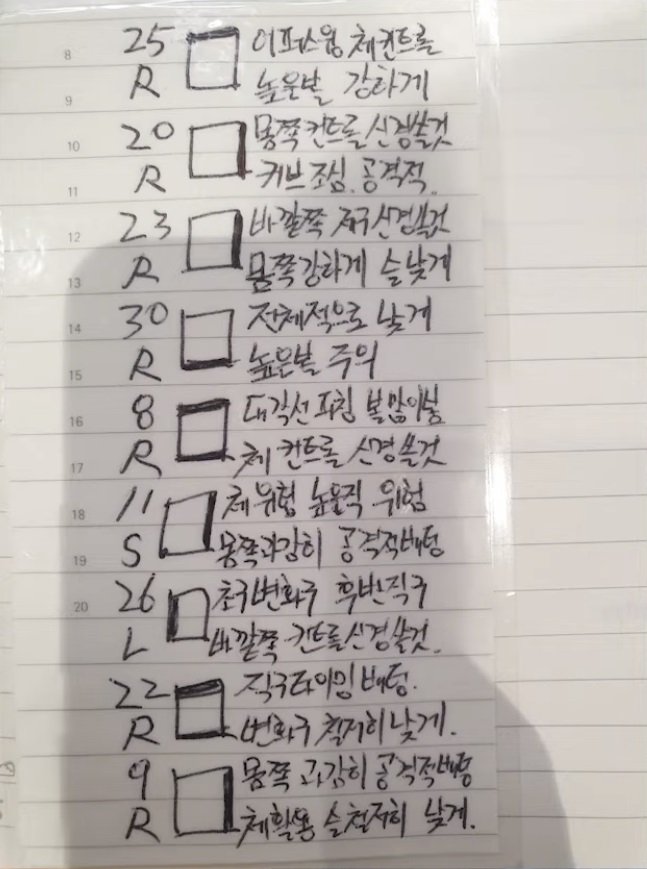 8 25 어퍼스윙 체컨트롤
9 R 높은볼 강하게
10 20 몸쪽컨트롤신경쓸것
11 R 커브조심. 공격적.
12 23 바깥쪽 제구신경쓸것
13 R 몸쪽강하게 슬낮게
14 30 전체적으로 낮게
15 R 높은볼 주의
16 8 대각선피칭
17 R 체 컨트롤 신경쓸것
18 11 체위험 높을직 위험
19 S 몸쪽과감히 공격적배팅
20 26 초구변화구 후반직구
L 바깥쪽 컨트롤신경쓸것.
22 직구타이밍배팅.
R 변화구 철저히낮게.
9 몸쪽 과감히공격적배팅
R 체활용 슬철저히 낮게.